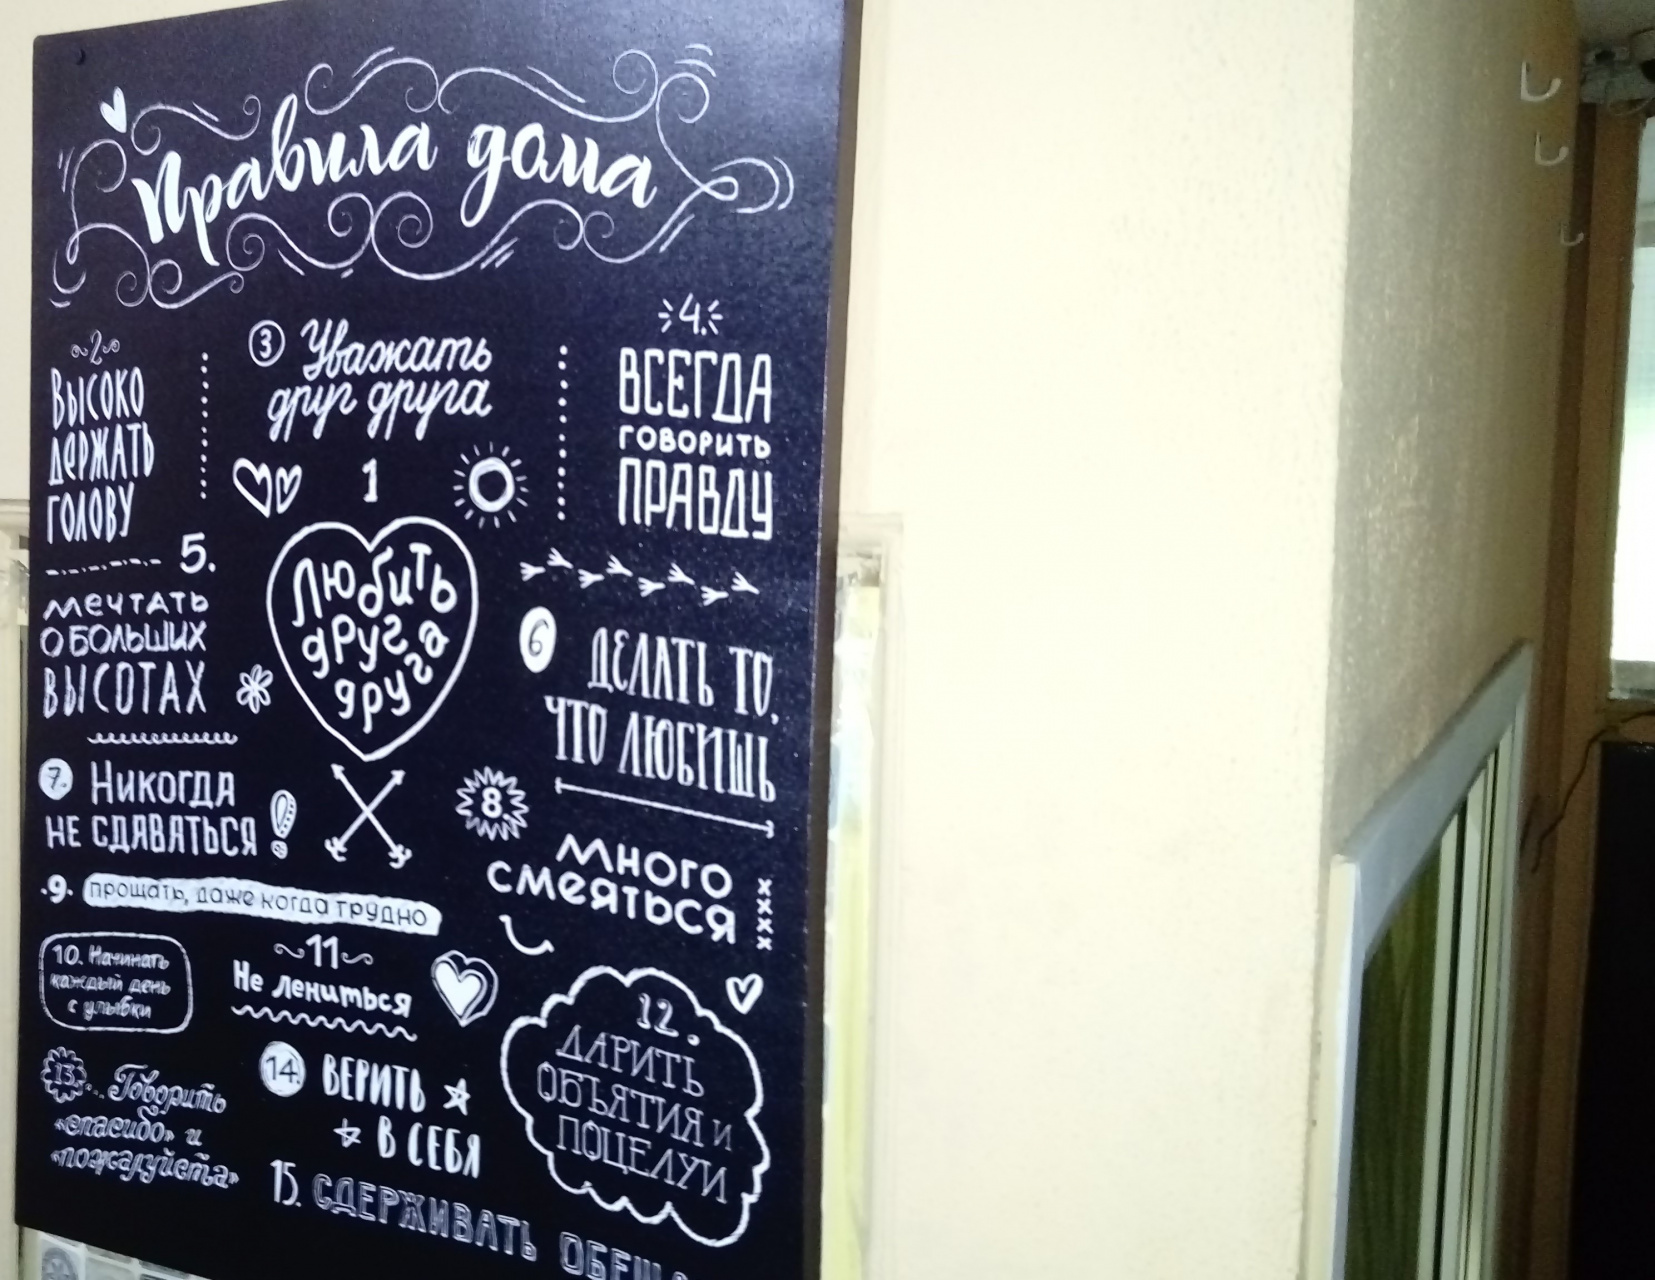 Правила дома
2
ВЫСОКО
ДЕРЖАТЬ
ГОЛОВУ
3 Уважать
друг друга
4.
ВСЕГДА
ГОВОРИТЬ
ПРАВДУ
1
Любить
друг
друга
5.
МЕЧТАТЬ
О БОЛЬШИХ
ВЫСОТАХ
6 ДЕЛАТЬ ТО,
ЧТО ЛЮБИШЬ
7. НИКОГДА
НЕ СДАВАТЬСЯ!
8.
МНОГО
СМЕЯТЬСЯ
9. прощать, даже когда трудно
10. Начинать
каждый день
с улыбки
11
Не лениться
12.
ДАРИТЬ
ОБЪЯТИЯ И
ПОЦЕЛУИ
13. Говорить
«спасибо» и
«пожалуйста»
14. ВЕРИТЬ
В СЕБЯ
15. СДЕРЖИВАТЬ